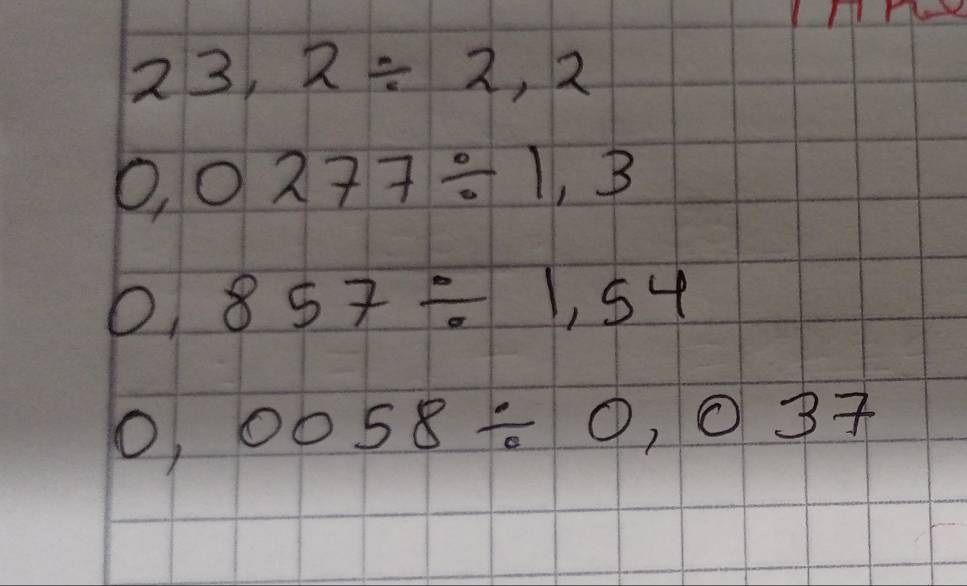 23,2÷2,2
0,0277÷1,3
0,857÷1,54
0,0058÷0,037